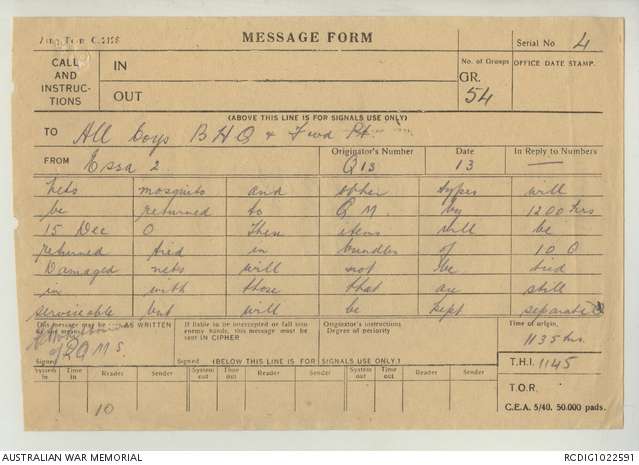 Army Form C.2128
MESSAGE FORM
Serial No 4
CALL AND INSTRUCTIONS
IN
OUT
No. of Groups
GR.
54
OFFICE DATE STAMP.
(ABOVE THIS LINE IS FOR SIGNALS USE ONLY)
TO All Coys BHQ & Fwd
FROM Essa 2.
Originator's Number
Q13
Date
13
In Reply to Numbers
—
Nets mosquito and other types will
be returned to QM. by 1200 hrs
15 Dec O These items will be
returned tied in bundles of 10 O
Damaged nets will not be tied
in with those that are still
serviceable but will be kept separate
This message may be AS WRITTEN
If liable to be intercepted or fall into enemy hands, this message must be sent IN CIPHER
Originator's instructions
Degree of periority
Time of origin.
1135 hrs.
QMS.
Signed
Signed
(BELOW THIS LINE IS FOR SIGNALS USE ONLY.)
T.H.I. 1145
System in
Time in
Reader
Sender
System out
Time out
Reader
Sender
System out
Time out
Reader
Sender
T.O.R.
10
C.E.A. 5/40. 50.000 pads.
AUSTRALIAN WAR MEMORIAL
RCDIG1022591